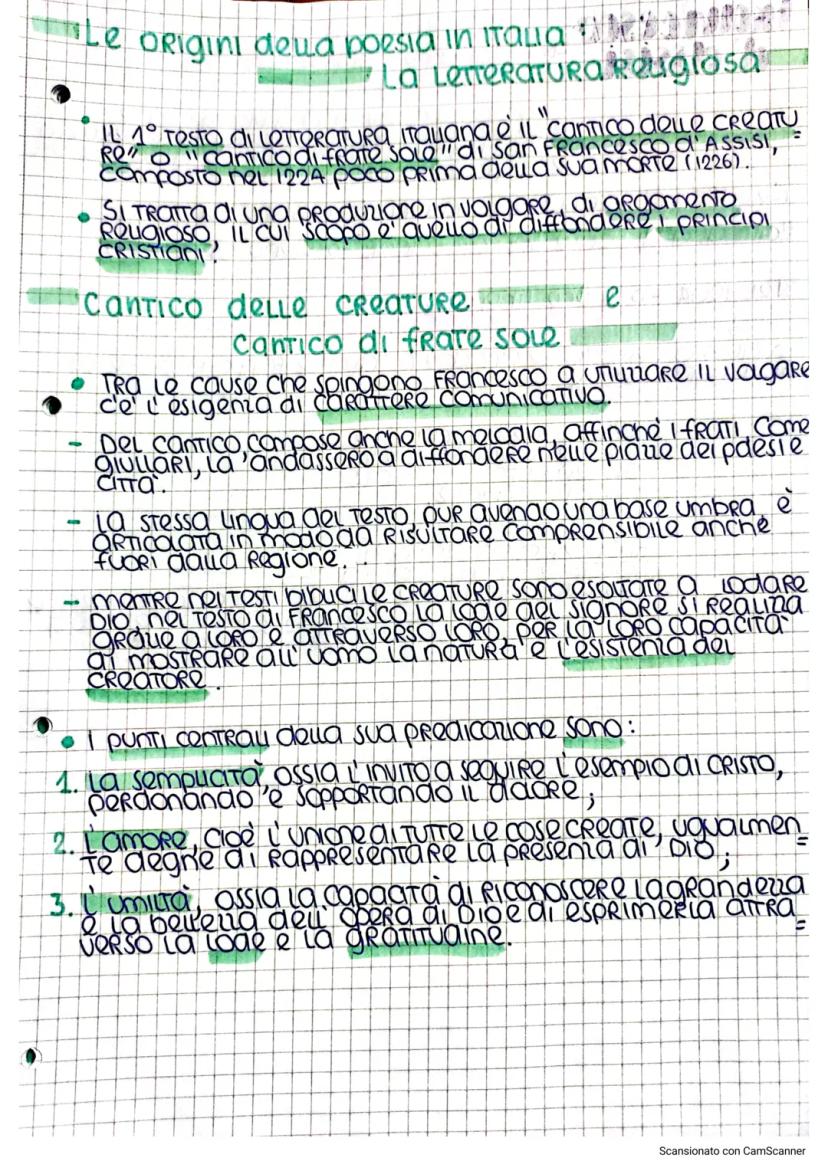 Le origini della poesia in Italia :
La letteratura religiosa
• Il 1° testo di letteratura italiana è il "cantico delle creatu=
re" o "cantico di frate sole" di San Francesco d'Assisi,
composto nel 1224 poco prima della sua morte (1226).
• Si tratta di una produzione in volgare, di argomento
religioso, il cui scopo è quello di diffondere i principi
cristiani.
Cantico delle creature e
Cantico di frate sole
• Tra le cause che spingono Francesco a utilizzare il volgare
c'è l'esigenza di carattere comunicativo.
- Del cantico compose anche la melodia, affinché i frati, come
giullari, la andassero a diffondere nelle piazze dei paesi e
città.
- La stessa lingua del testo, pur avendo una base umbra, è
articolata in modo da risultare comprensibile anche
fuori dalla regione.
- Mentre nei testi biblici le creature sono esortate a lodare
Dio, nel testo di Francesco la lode del Signore si realizza
grazie a loro e attraverso loro, per la loro capacità
di mostrare all'uomo la natura e l'esistenza del
creatore.
• I punti centrali della sua predicazione sono:
1. La semplicità, ossia l'invito a seguire l'esempio di Cristo,
perdonando e sopportando il dolore;
2. L'amore, cioè l'unione di tutte le cose create, ugualmen=
te degne di rappresentare la presenza di Dio;
3. L'umiltà, ossia la capacità di riconoscere la grandezza
e la bellezza dell'opera di Dio e di esprimerla attra=
verso la lode e la gratitudine.
Scansionato con CamScanner